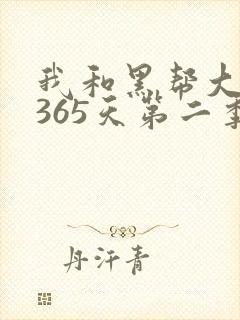 我和黑帮大
365天第二季
丹汗青